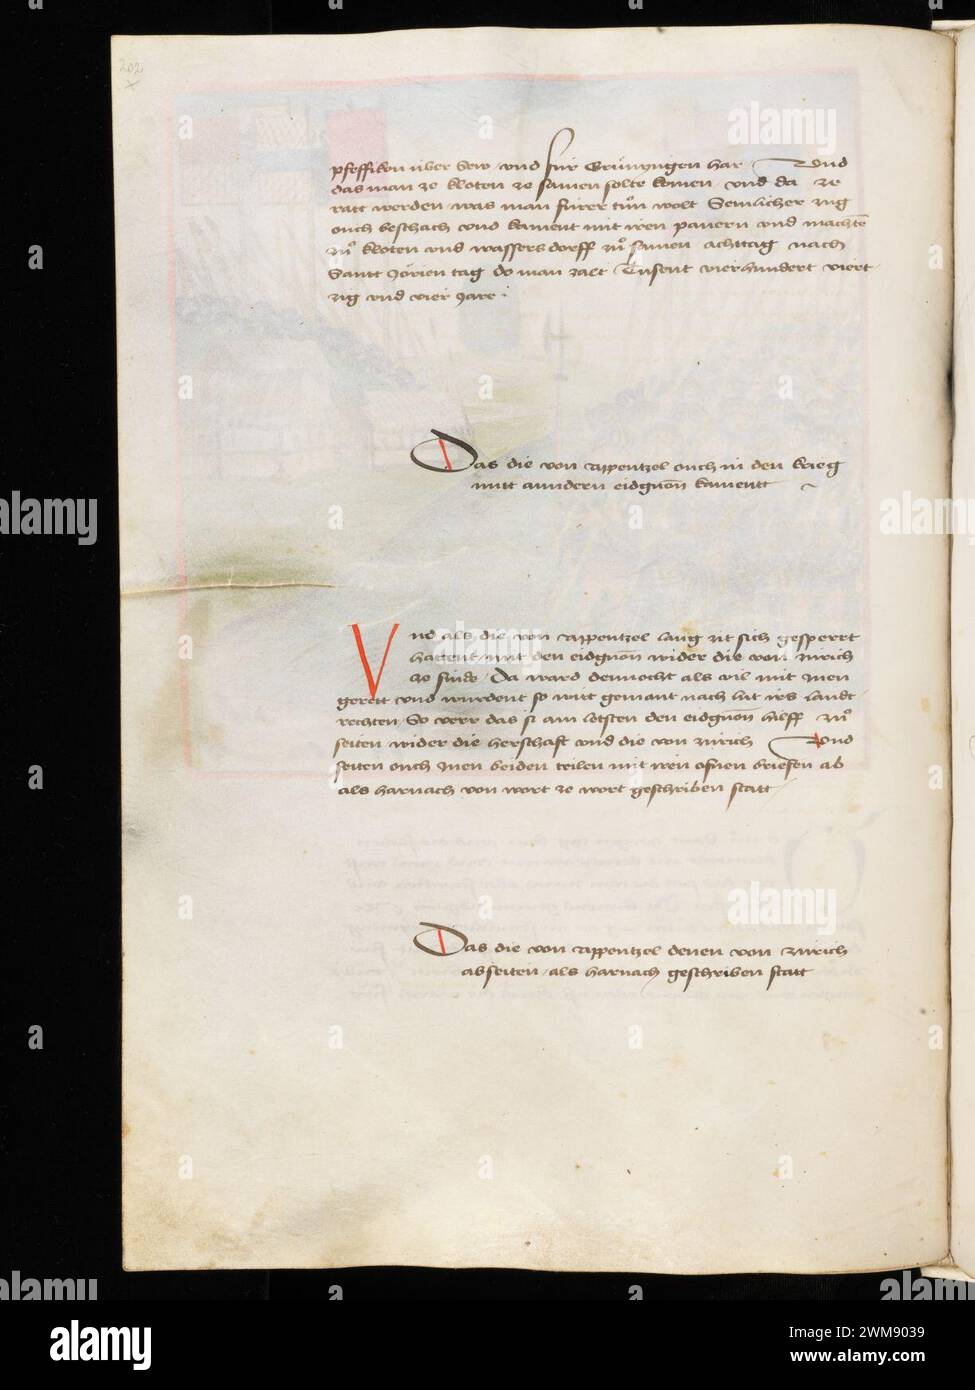 202
pfeffikon über Sew / vnd für Grünyngen har Vnd
das man ze kloten ze samen solte komen / vnd da ze
ratt werden was man fürer tůn wolt Semlicher zug
ouch beschach vnd kament mit iren panern vnd machtē
zů kloten vnd wassersdorff zů samen achttag nach
Santt Jörien tag do man zalt Tusent vierhundert viert
zig vnd vier jare
Das die von appentzel ouch in den krieg
mitt anndern eidgnon̄ kamentt
Vnd als die von appentzel lang zit sich gesperrt
hattent mit den eidgnon̄ wider die von zürich
ze sinde / Da ward dennocht als vil mit Inen
gerett vnd wurdent so witt gemant nach lut irs landt
rechten, So verr das si am letsten den eidgnon̄ hilff zů
seiten wider die herschaft vnd die von zurich Vnd
seiten ouch Inen beiden teilen mit iren ofnen briefen ab
als harnach von wort ze wort geschriben statt
Das die von appentzel denen von zurich
abseiten / als harnach geschriben statt
alamy
Image ID: 2WM9039
www.alamy.com